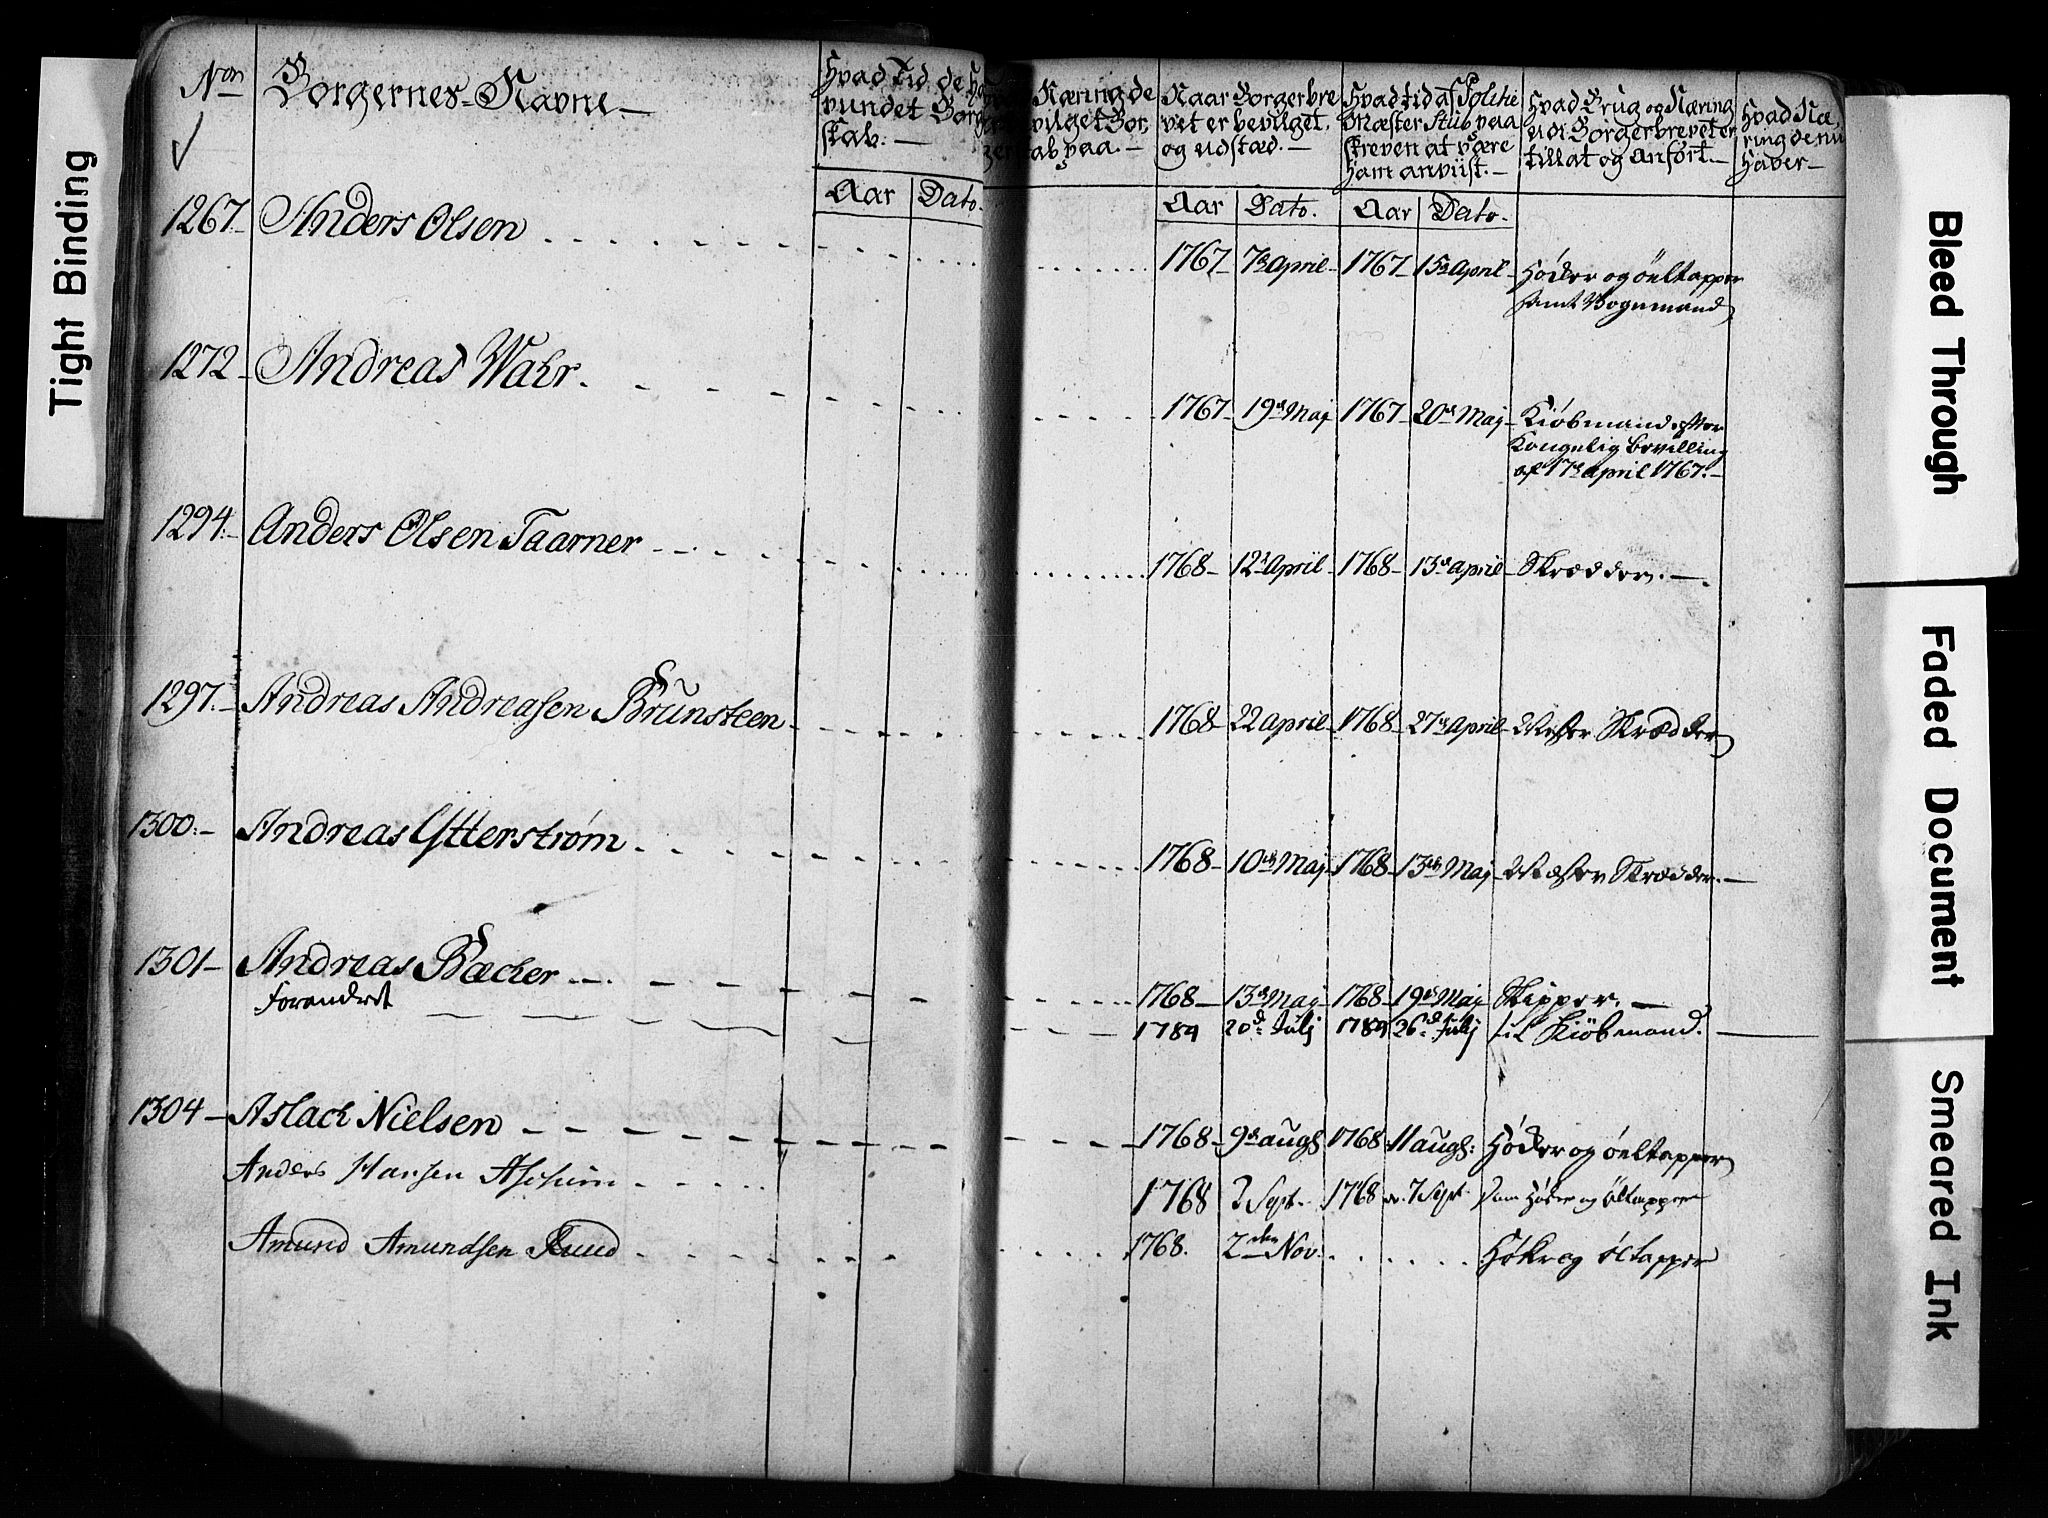 Tight Binding
Bleed Through
Faded Document
Smeared Ink
Non Borgernes Navne
Hvad Tid de
vundet Borg
skab.
Aar Dato.
Næring de
vilget Bor,
gerskab paa.
Naar Borgerbre
vet er bevilget,
og udstæd.
Aar Dato.
Hvad tid af Politie
Mæster Stub paa
skreven at være
ham anviist.
Aar Dato.
Hvad Brug og Næring
udi Borgerbrevet er
tillat og anført.
Hvad Næ,
ring de nu
Haver
1267 Anders Olsen 1767 7de April 1767 15de April Höcker og öeltapper
samt Vognmand
1272 Andreas Wahr. 1767 19de Maj 1767 20de Maj Kiöbmand efter
Kongelig bevilling
af 17de April 1767.
1294 Anders Olsen Taarner 1768 12te April 1768 13de April Skrædder.
1297. Andreas Andreasen Brunsteen 1768 22 April 1768 27de April Mester Skrædder
1300. Andreas Ytterstrøm 1768 10de Maj 1768 13de Maj Mester Skrædder.
1301 Andreas Bæcher 1768 13de Maj 1768 19de Maj Skipper.
Forandret 1789 20d Julj 1789 26d Julj til Kiöbmand.
1304 Aslach Nielsen 1768 9de augs 1768 11 augs: Höcker og öeltapper
Anders Hansen 1768 2 Sept. 1768 7 Sept. Höker og öltapper
Amund Amundsen Ruud 1768. 2den Nov. Høker og øltapper